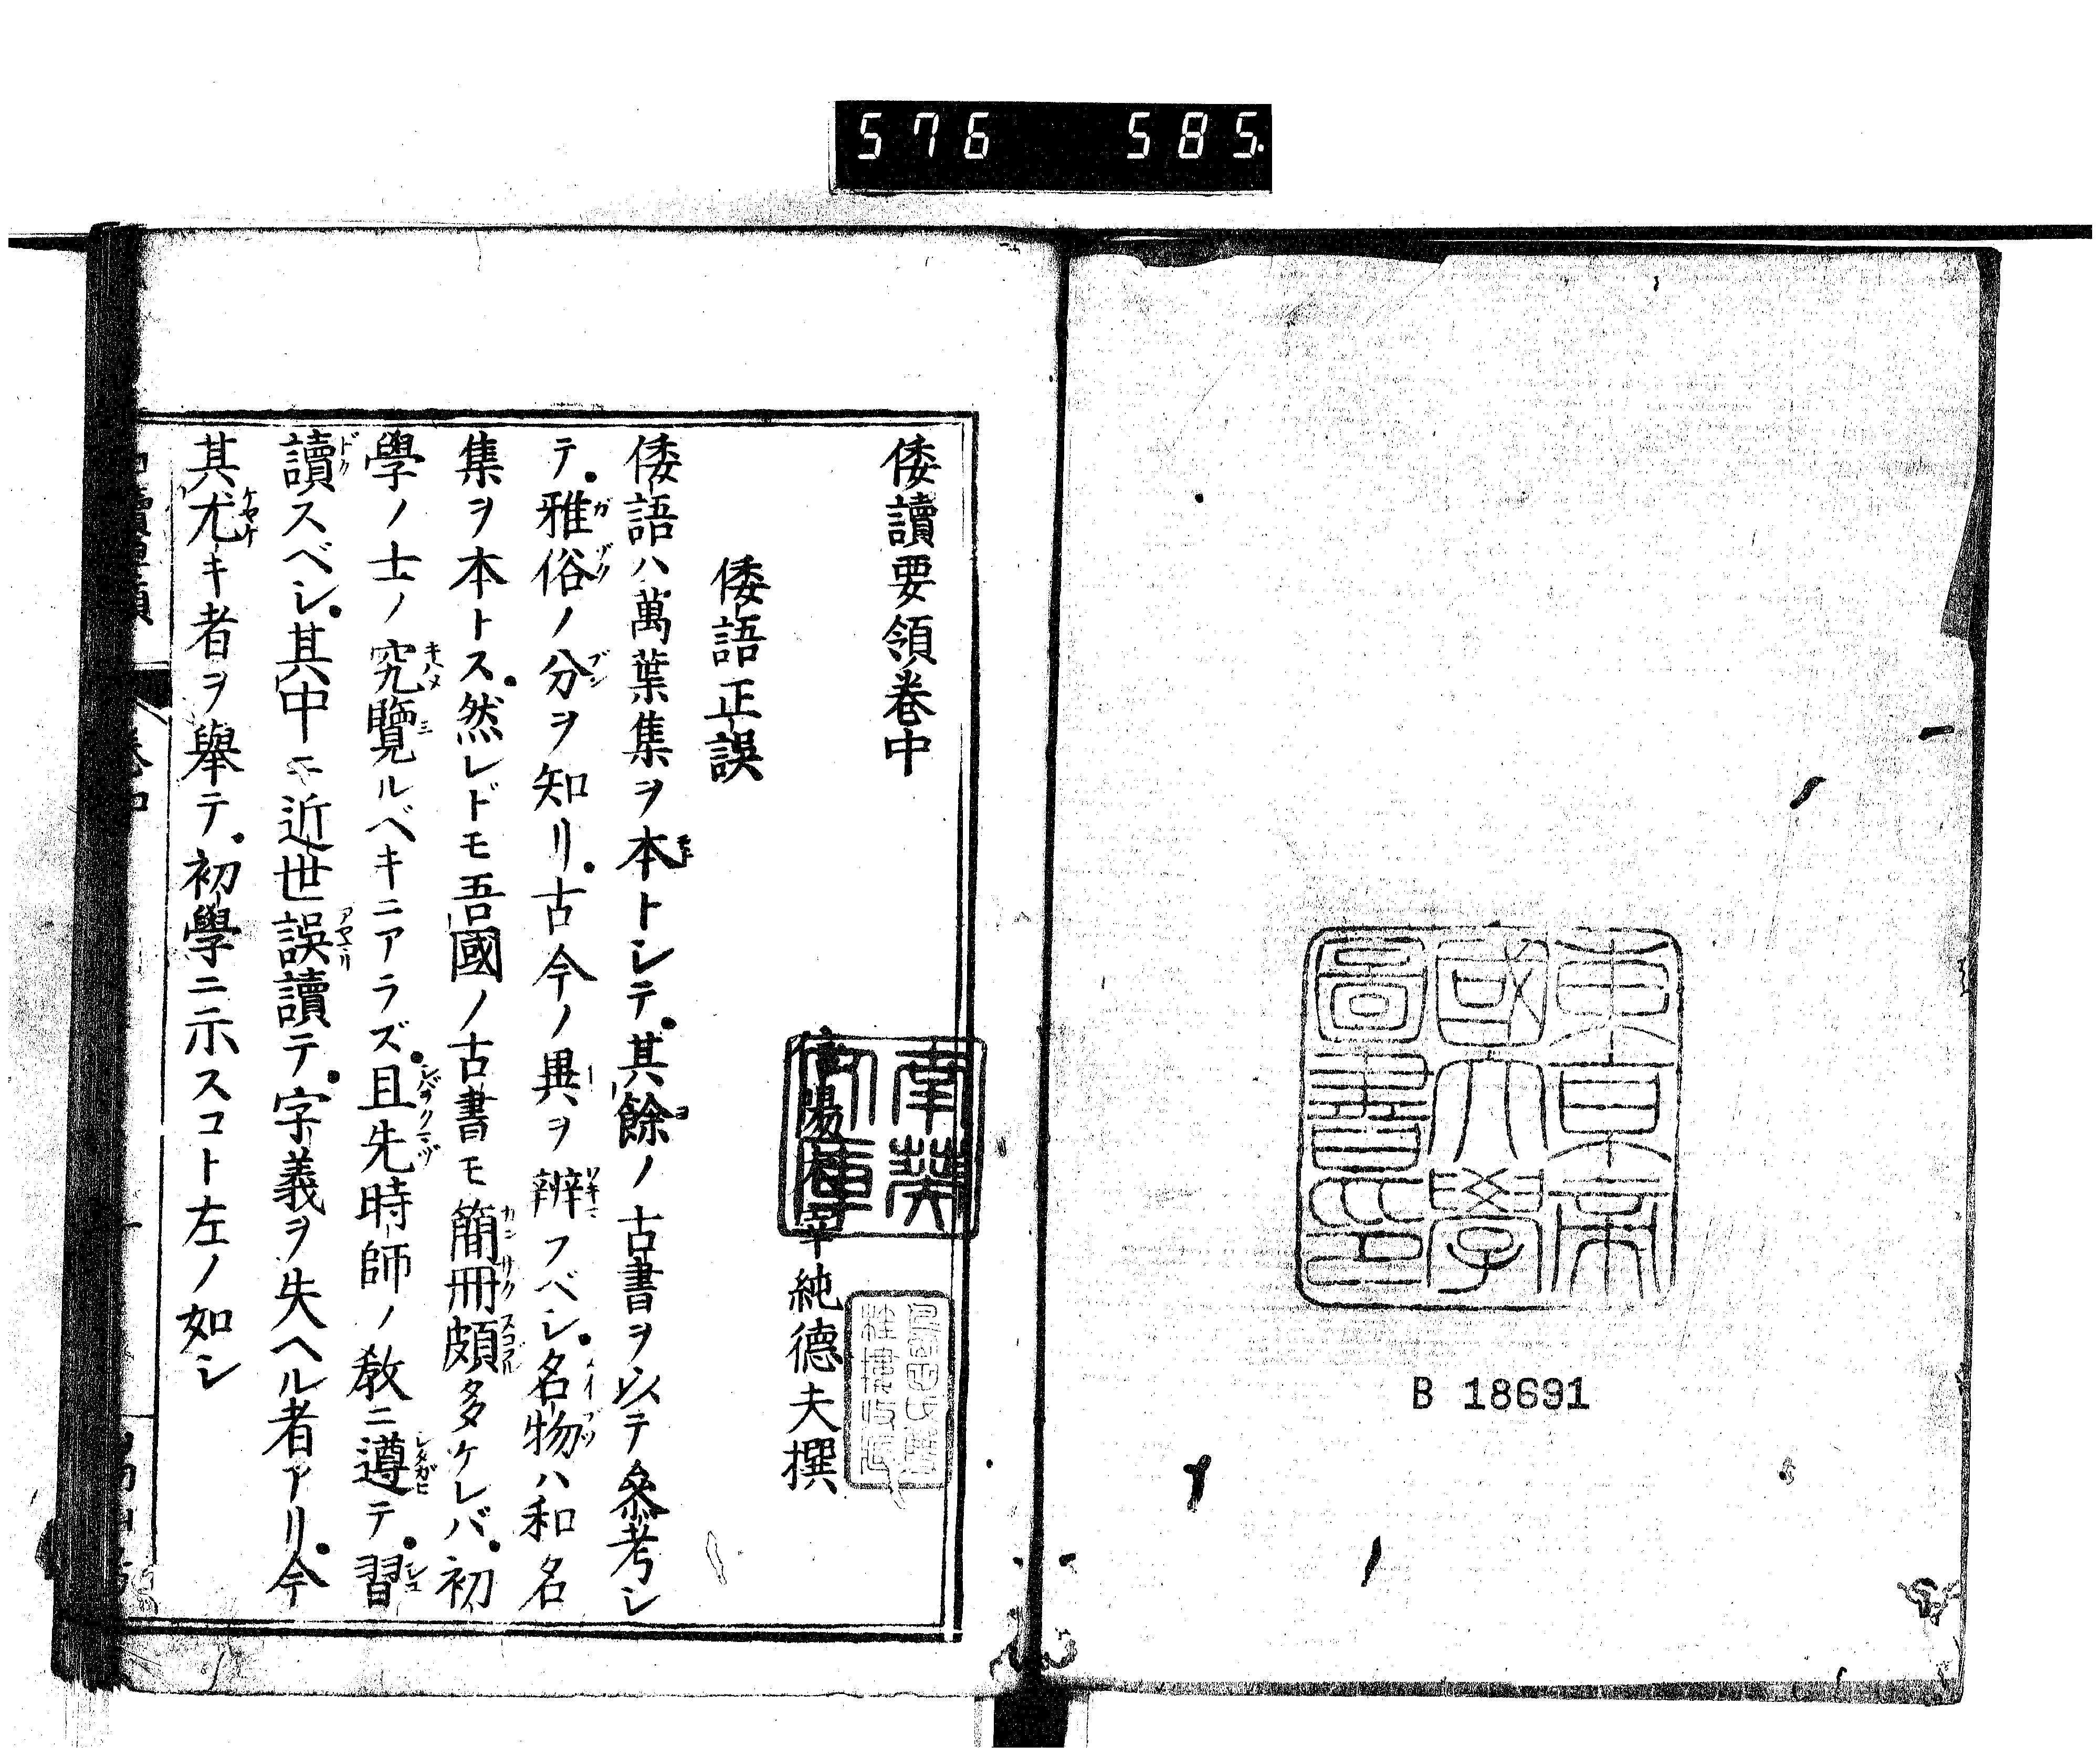 576 585.
東京帝
國大學
圖書印
B 18691
倭讀要領卷中
南葵
文庫
信陽太宰純德夫撰
倭語正誤
倭語ハ萬葉集ヲ本トシテ其餘ノ古書ヲ以テ參考シ
テ雅俗ノ分ヲ知リ古今ノ異ヲ辨フベシ名物ハ和名
集ヲ本トス然レドモ吾國ノ古書モ簡冊頗多ケレバ初
學ノ士ノ究覽ルベキニアラズ且先時師ノ教ニ遵テ習
讀スベシ其中ニ近世誤讀テ字義ヲ失ヘル者アリ今
其尤キ者ヲ舉テ初學ニ示スコト左ノ如シ